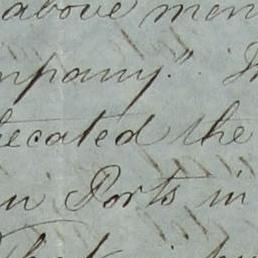 above men
mpany."
ecated the
Ports in